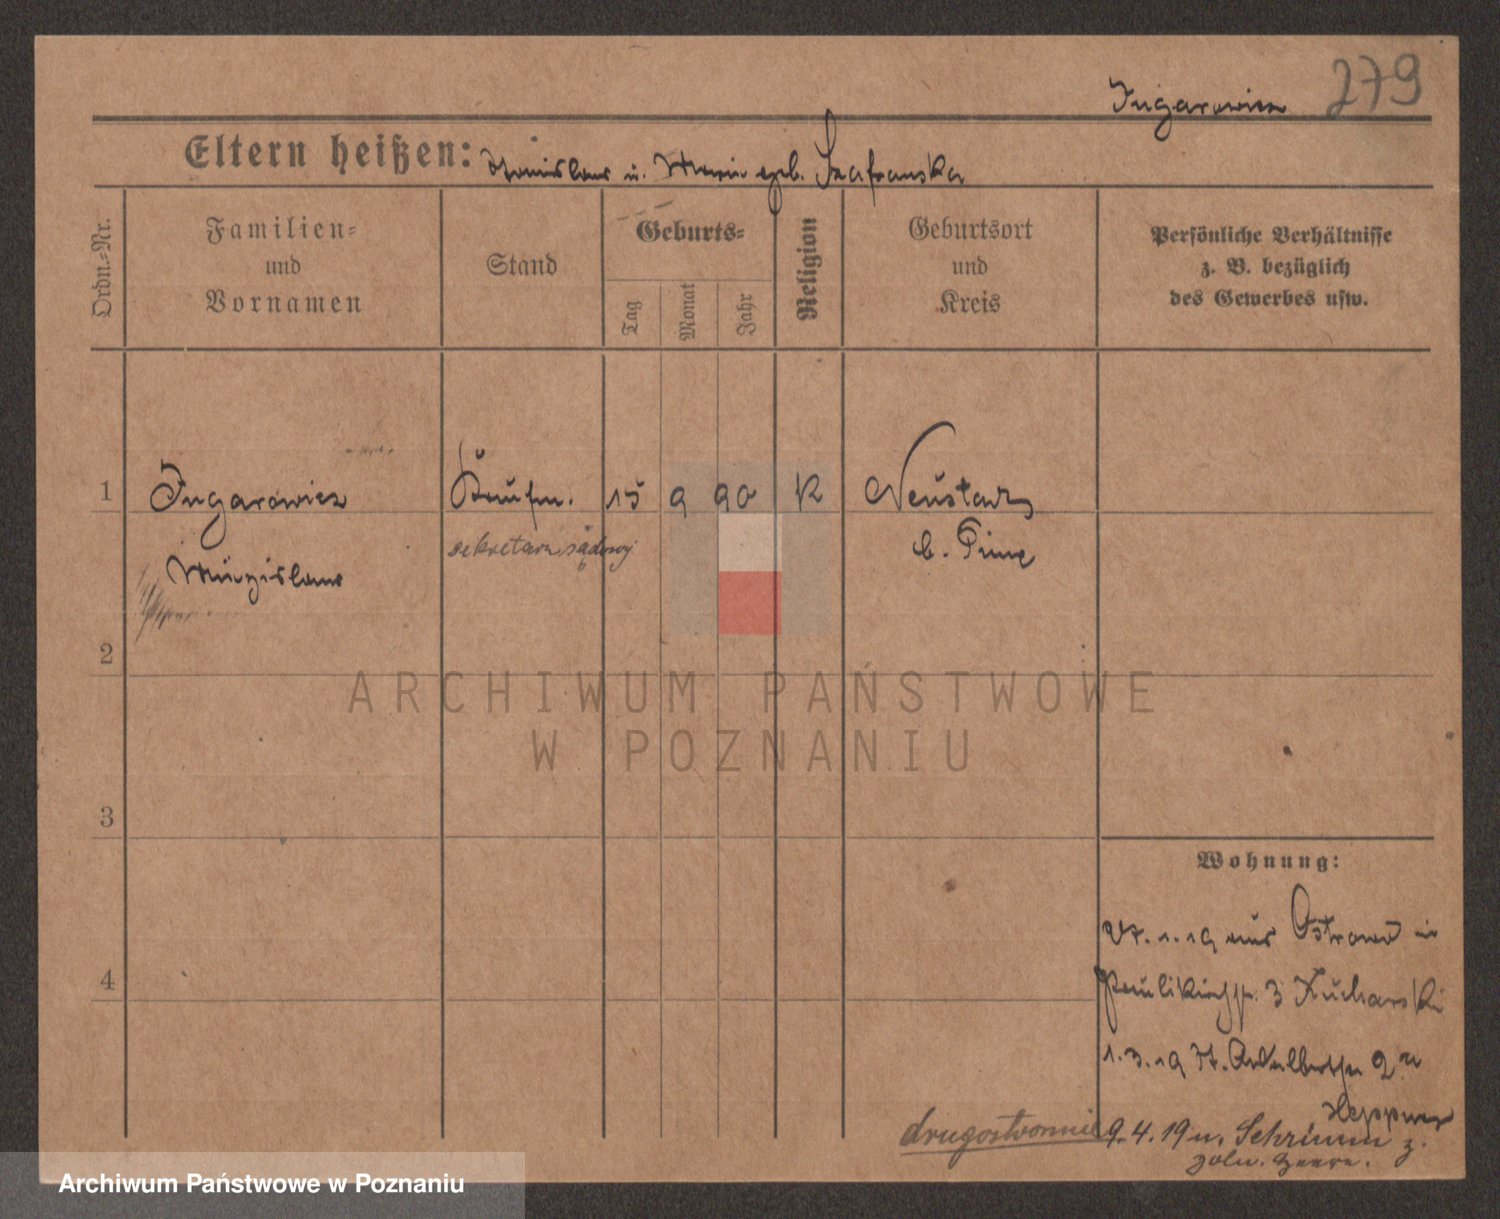 Ingarowicz 279
Eltern heißen: Stanislaus u. Maria geb. Szafranska
Ordn.-Nr.
Familien-
und
Vornamen
Stand
Geburts-
Tag
Monat
Jahr
Religion
Geburtsort
und
Kreis
Persönliche Verhältnisse
z. B. bezüglich
des Gewerbes usw.
1 Ingarowicz Kaufm. 15 9 90 K Neustadt
sekretarz sądowy
b. Pinne
Miezislaus
2
3
4
ARCHIWUM PAŃSTWOWE
W POZNANIU
Wohnung:
1.19 aus Ostrowo in
Paulikirchstr. 3 Kucharski
1.3.19 St. Adalbertstr. 2
Heppner
drugostronnie 9.4.19 n. Schrimm z.
Archiwum Państwowe w Poznaniu